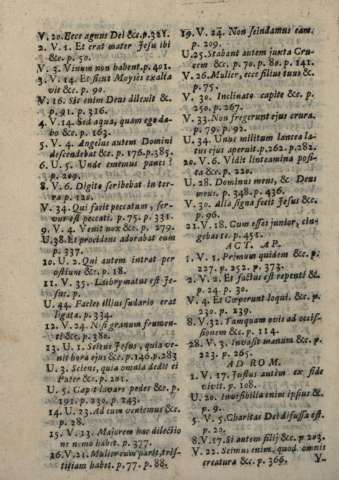 V. 20. Ecce agnus Dei &c. p. 381.
2. V. 1. Et erat mater Jesu ibi
&c. p. 50.
V. 3. Vinum non habent. p. 401.
3. V. 14. Et sicut Moyses exalta
vit &c. p. 90.
V. 16. Sic enim Deus dilexit &c.
p. 91. p. 316.
4. V. 14. Sed aqua, quam ego da-
bo &c. p. 163.
5. V. 4. Angelus autem Domini
descendebat &c. p. 176. p. 385.
6. U. 5. Unde ememus panes?
p. 209.
8. V. 6. Digito scribebat in ter-
ra p. 120.
V. 34. Qui facit peccatum, ser-
vus est peccati. p. 75. p. 331.
9. V. 4. Venit nox &c. p. 279.
U. 38. Et procidens adorabat eum
p. 337.
10. U. 2. Qui autem intrat per
ostium &c. p. 18.
11. V. 35. Lachrymatus est Je-
sus. p.
U. 44. Facies illius sudario erat
ligata. p. 334.
12. V. 24. Nisi granum frumen-
ti &c. p. 380.
13. U. 1. Sciens Jesus, quia ve-
nit hora ejus &c. p. 146. p. 283
U. 3. Sciens, quia omnia dedit ei
Pater &c. p. 281.
U. 5. Capit lavare pedes &c. p.
191. p. 230. p. 243.
14. U. 23. Ad eum veniemus &c.
p. 28.
15. V. 13. Majorem hac dilectio
ne nemo habet. p. 377.
16. V. 21. Mulier cum parit, tris-
titiam habet. p. 77. p. 88.
19. V. 24. Non scindamus eam.
p. 209.
U. 25. Stabant autem juxta Cru-
cem &c. p. 70. p. 80. p. 141.
V. 26. Mulier, ecce filius tuus &c.
p. 75.
V. 30. Inclinato capite &c. p.
250. p. 267.
V. 33. Non fregerunt ejus crura.
p. 79. p. 92.
U. 34. Unus militum lancea la-
tus ejus aperuit. p. 262. p. 282.
20. V. 6. Vidit linteamina posi-
ta &c. p. 220.
U. 28. Dominus meus, & Deus
meus. p. 348. p. 436.
V. 30. Alia signa fecit Jesus &c.
p. 96.
21. V. 18. Cum esses junior, cin-
gebas te. p. 451.
ACT. AP.
1. V. 1. Primum quidem &c. p.
227. p. 252. p. 373.
2. V. 2. Et factus est repente &c.
p. 24. p. 30.
V. 4. Et cœperunt loqui. &c. p.
230. p. 239.
8. V. 32. Tamquam ovis ad occis-
sionem &c. p. 114.
28. V. 3. Invasit manum &c. p.
223. p. 265.
AD ROM.
1. V. 17. Justus autem ex fide
vivit. p. 108.
U. 20. Invisibilia enim ipsius &c.
p. 9.
5. V. 5. Charitas Dei diffusa est.
p. 20.
8. V. 17. Si autem filij &c. p. 203.
V. 22. Scimus enim, quod omnis
creatura &c. p. 366. Y-